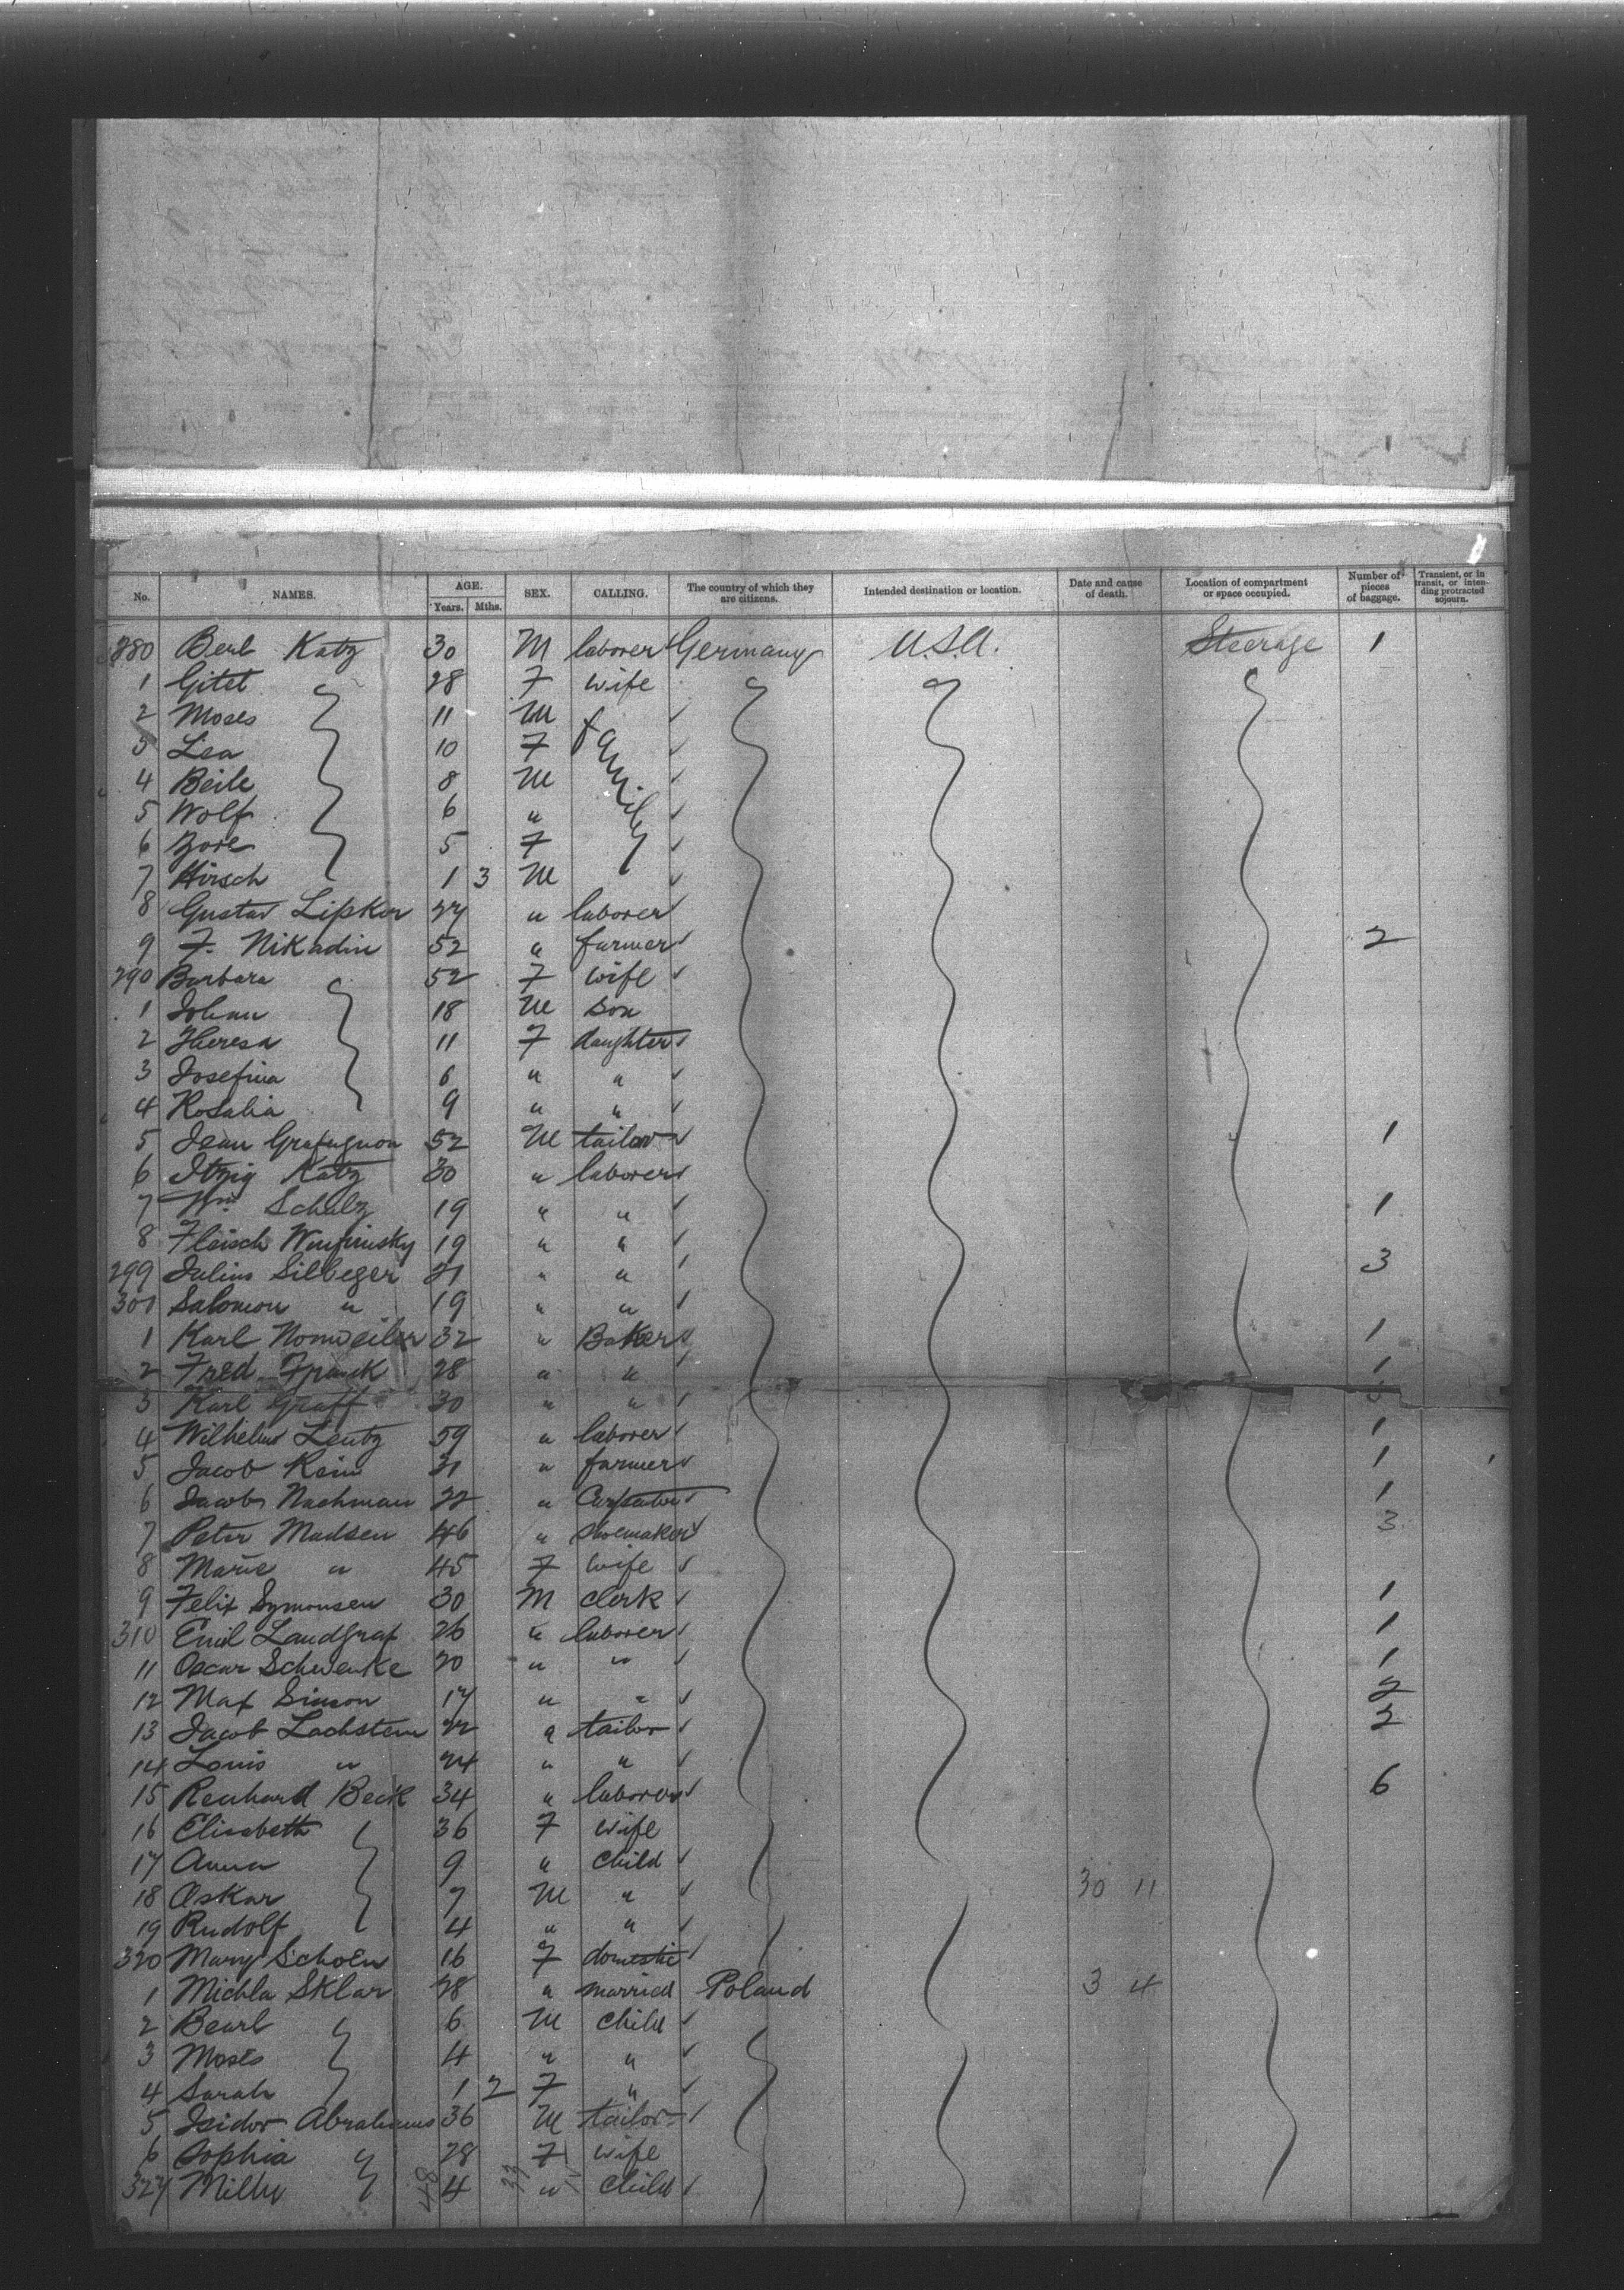 No. NAMES. AGE. Years. Mths. SEX. CALLING. The country of which they are citizens. Intended destination or location. Date and cause of death. Location of compartment or space occupied. Number of pieces of baggage. Transient, or in transit, or intending protracted sojourn.
280 Berl Katz 30 M laborer Germany U.S.A. Steerage 1
1 Gitel 28 F wife
2 Moses 11 M family
3 Lea 10 F
4 Beile 8 M
5 Wolf 6 "
6 5 F
7 Hirsch 1 3 M
8 Gustav Lipker 27 " laborer
9 F. Nikadin 52 " farmer 2
290 Barbara 52 F wife
1 Johan 18 M son
2 Theresa 11 F daughter
3 Josefina 6 " "
4 Rosalia 9 " "
5 Jean 52 M tailor 1
6 Itzig Katz 30 " laborer
7 Wm Schulz 19 " " 1
8 19 " "
299 Julius Silbeger 21 " " 3
300 Salomon " 19 " "
1 Karl Nonweiler 32 " Baker 1
2 Fred Franck 28 " " 1
3 Karl Graff 30 " "
4 Wilhelm Lentz 59 " laborer 1
5 Jacob Keim 31 " farmer 1
6 Jacob Nachman 22 " Carpenter 1
7 Peter Madsen 46 " shoemaker 3
8 Marie " 45 F wife
9 Felix Symonsen 30 M clerk 1
310 Emil Landgraf 26 " laborer 1
11 Oscar Schwenke 20 " " 1
12 Max Simson 17 " " 2
13 Jacob Lachstein 22 " tailor 2
14 Louis " 24 " "
15 Renhard Beck 34 " laborer 6
16 Elisabeth 36 F wife
17 Anna 9 " child
18 Oskar 7 M " 30 11
19 Rudolf 4 " "
320 Mary Schoen 16 F domestic
1 Michla Sklar 28 " married Poland 3 4
2 Bearl 6 M child
3 Moses 4 " "
4 Sarah 1 2 F "
5 Isidor Abrahams 36 M tailor
6 Sophia 28 F wife
327 Milly 4 " child